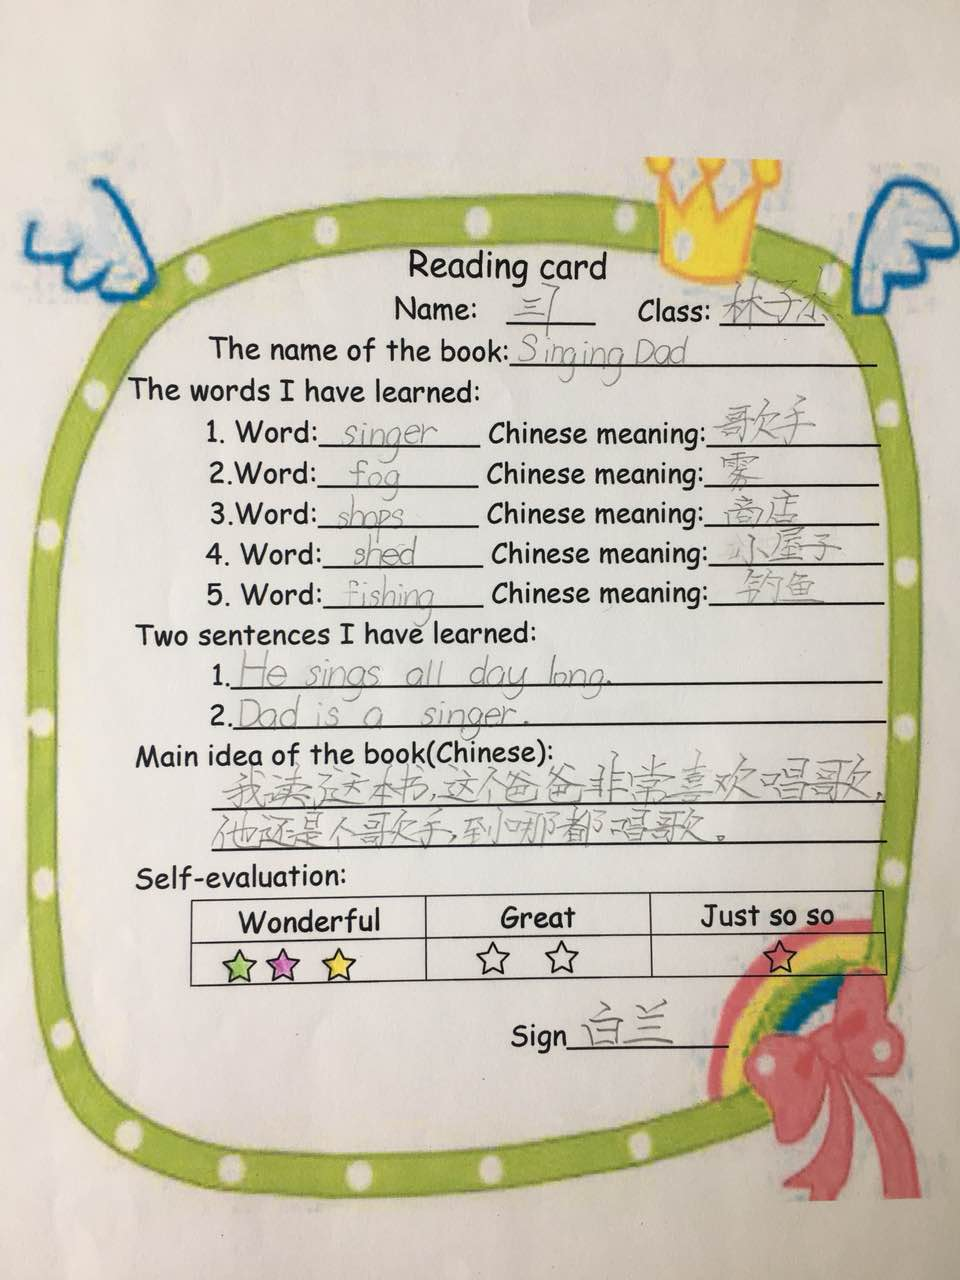 Reading card
Name: 三1 Class: 林子杰
The name of the book: Singing Dad
The words I have learned:
1. Word: singer Chinese meaning: 歌手
2.Word: fog Chinese meaning: 雾
3.Word: shops Chinese meaning: 商店
4. Word: shed Chinese meaning: 小屋子
5. Word: fishing Chinese meaning: 钓鱼
Two sentences I have learned:
1. He sings all day long.
2. Dad is a singer.
Main idea of the book(Chinese):
我读这本书,这个爸爸非常喜欢唱歌,
他还是个歌手,到哪都唱歌。
Self-evaluation:
Wonderful Great Just so so
Sign 白兰